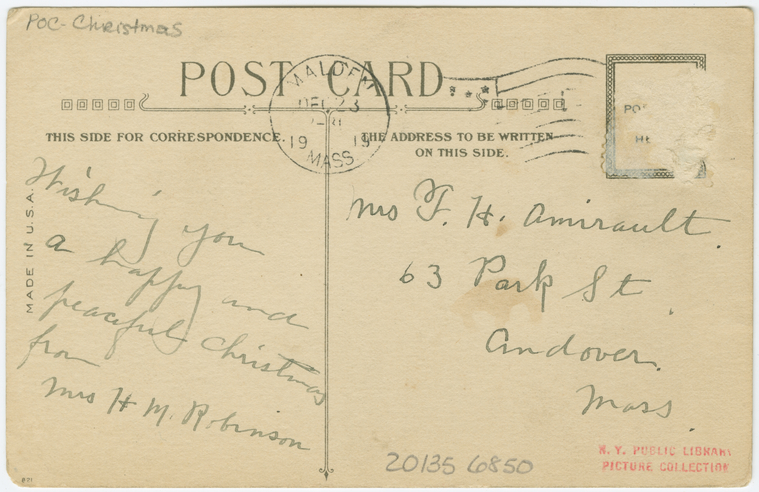 POC-Christmas
POST CARD
MALDEN
DEC 23
1919
MASS
THIS SIDE FOR CORRESPONDENCE.
THE ADDRESS TO BE WRITTEN
ON THIS SIDE.
MADE IN U.S.A.
Wishing you
a happy and
peaceful Christmas
from
Mrs H M. Robinson
Mrs F. H. Amirault.
63 Park St
Andover.
Mass.
20135 6850
N. Y. PUBLIC LIBRARY
PICTURE COLLECTION